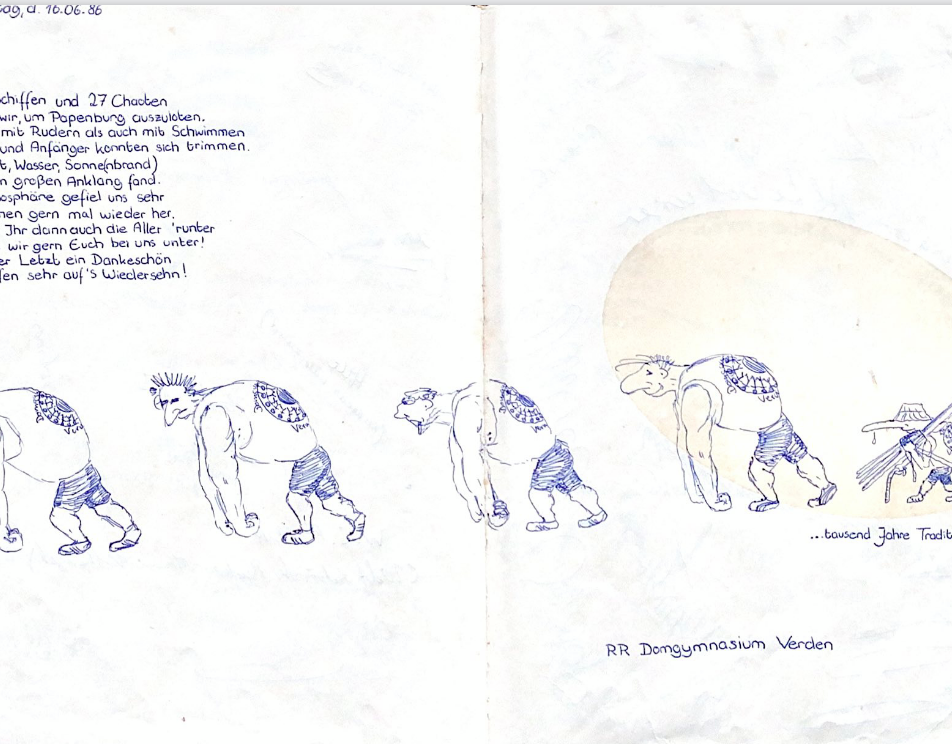 ag, d. 16.06.86
chiffen und 27 Chaoten
wir, um Papenburg auszuloten.
mit Rudern als auch mit Schwimmen
und Anfänger konnten sich trimmen.
t, Wasser, Sonne(nbrand)
n großen Anklang fand.
osphäre gefiel uns sehr
men gern mal wieder her.
Ihr dann auch die Aller 'runter
wir gern Euch bei uns unter!
er Letzt ein Dankeschön
fen sehr auf's Wiedersehn!
...tausend Jahre Tradit
RR Domgymnasium Verden